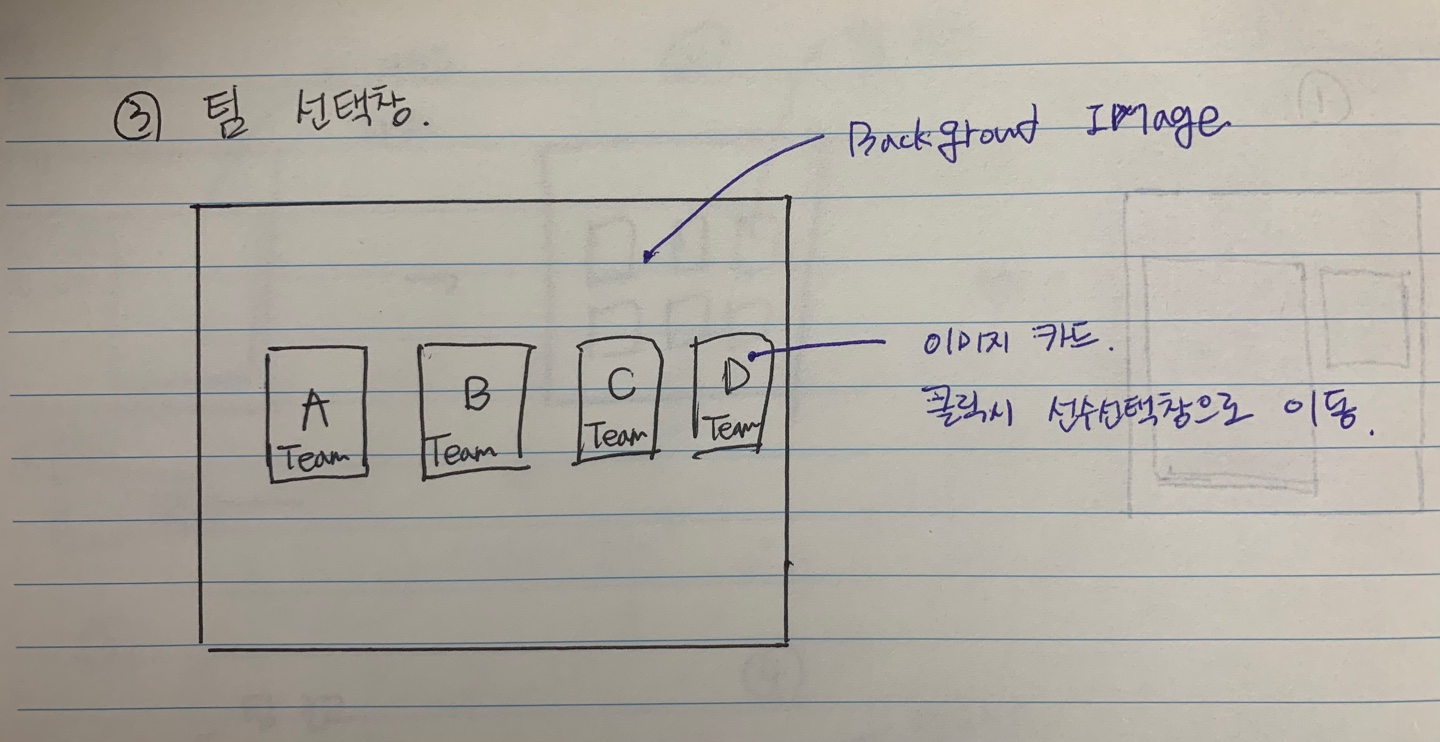 ③ 팀 선택창.
Background Image
A
Team
B
Team
C
Team
D
Team
이미지 카드.
클릭시 선수선택창으로 이동.